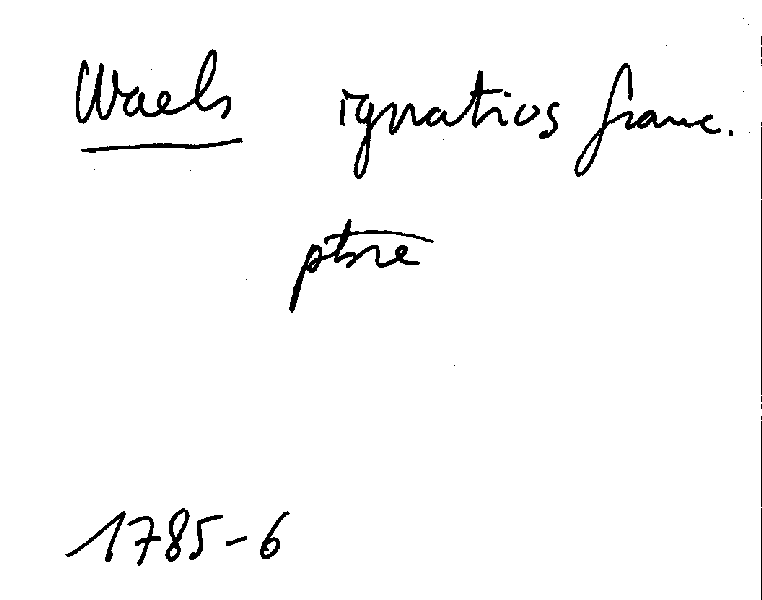 Waels ignatios franc.
ptbre
1785-6